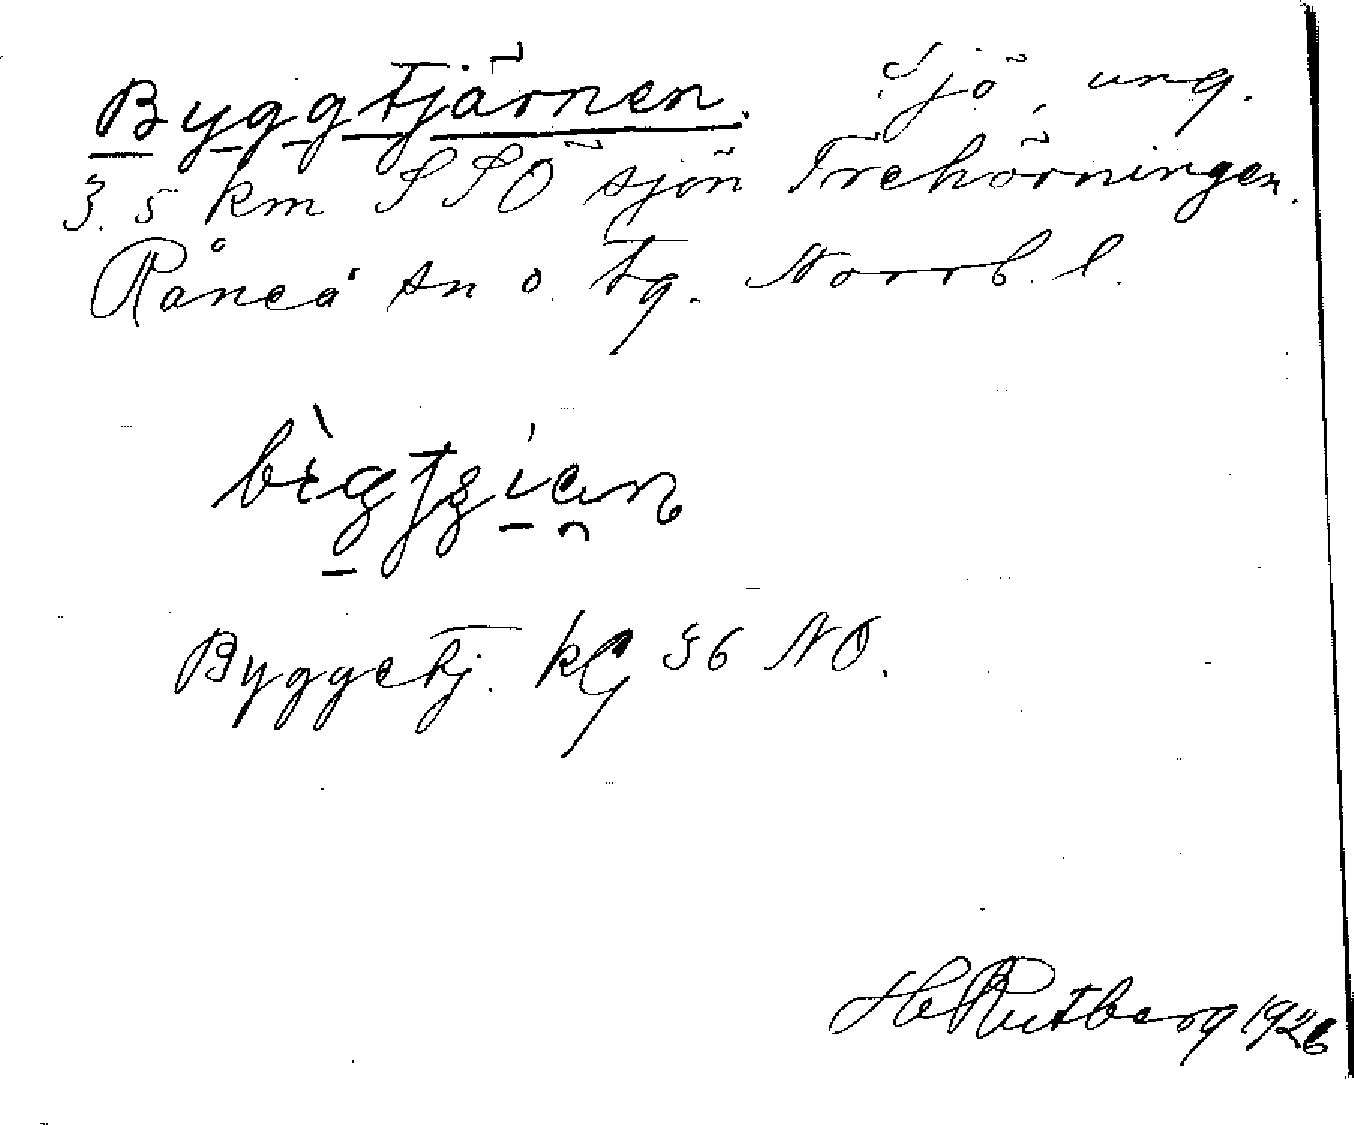 Byggtjärnen. Sjö, ung.
3.5 km SSO sjön Trehörningen.
Råneå sn o. tg. Norrb. l.
Byggetj. kG 36 NO.
H Rutberg 1926